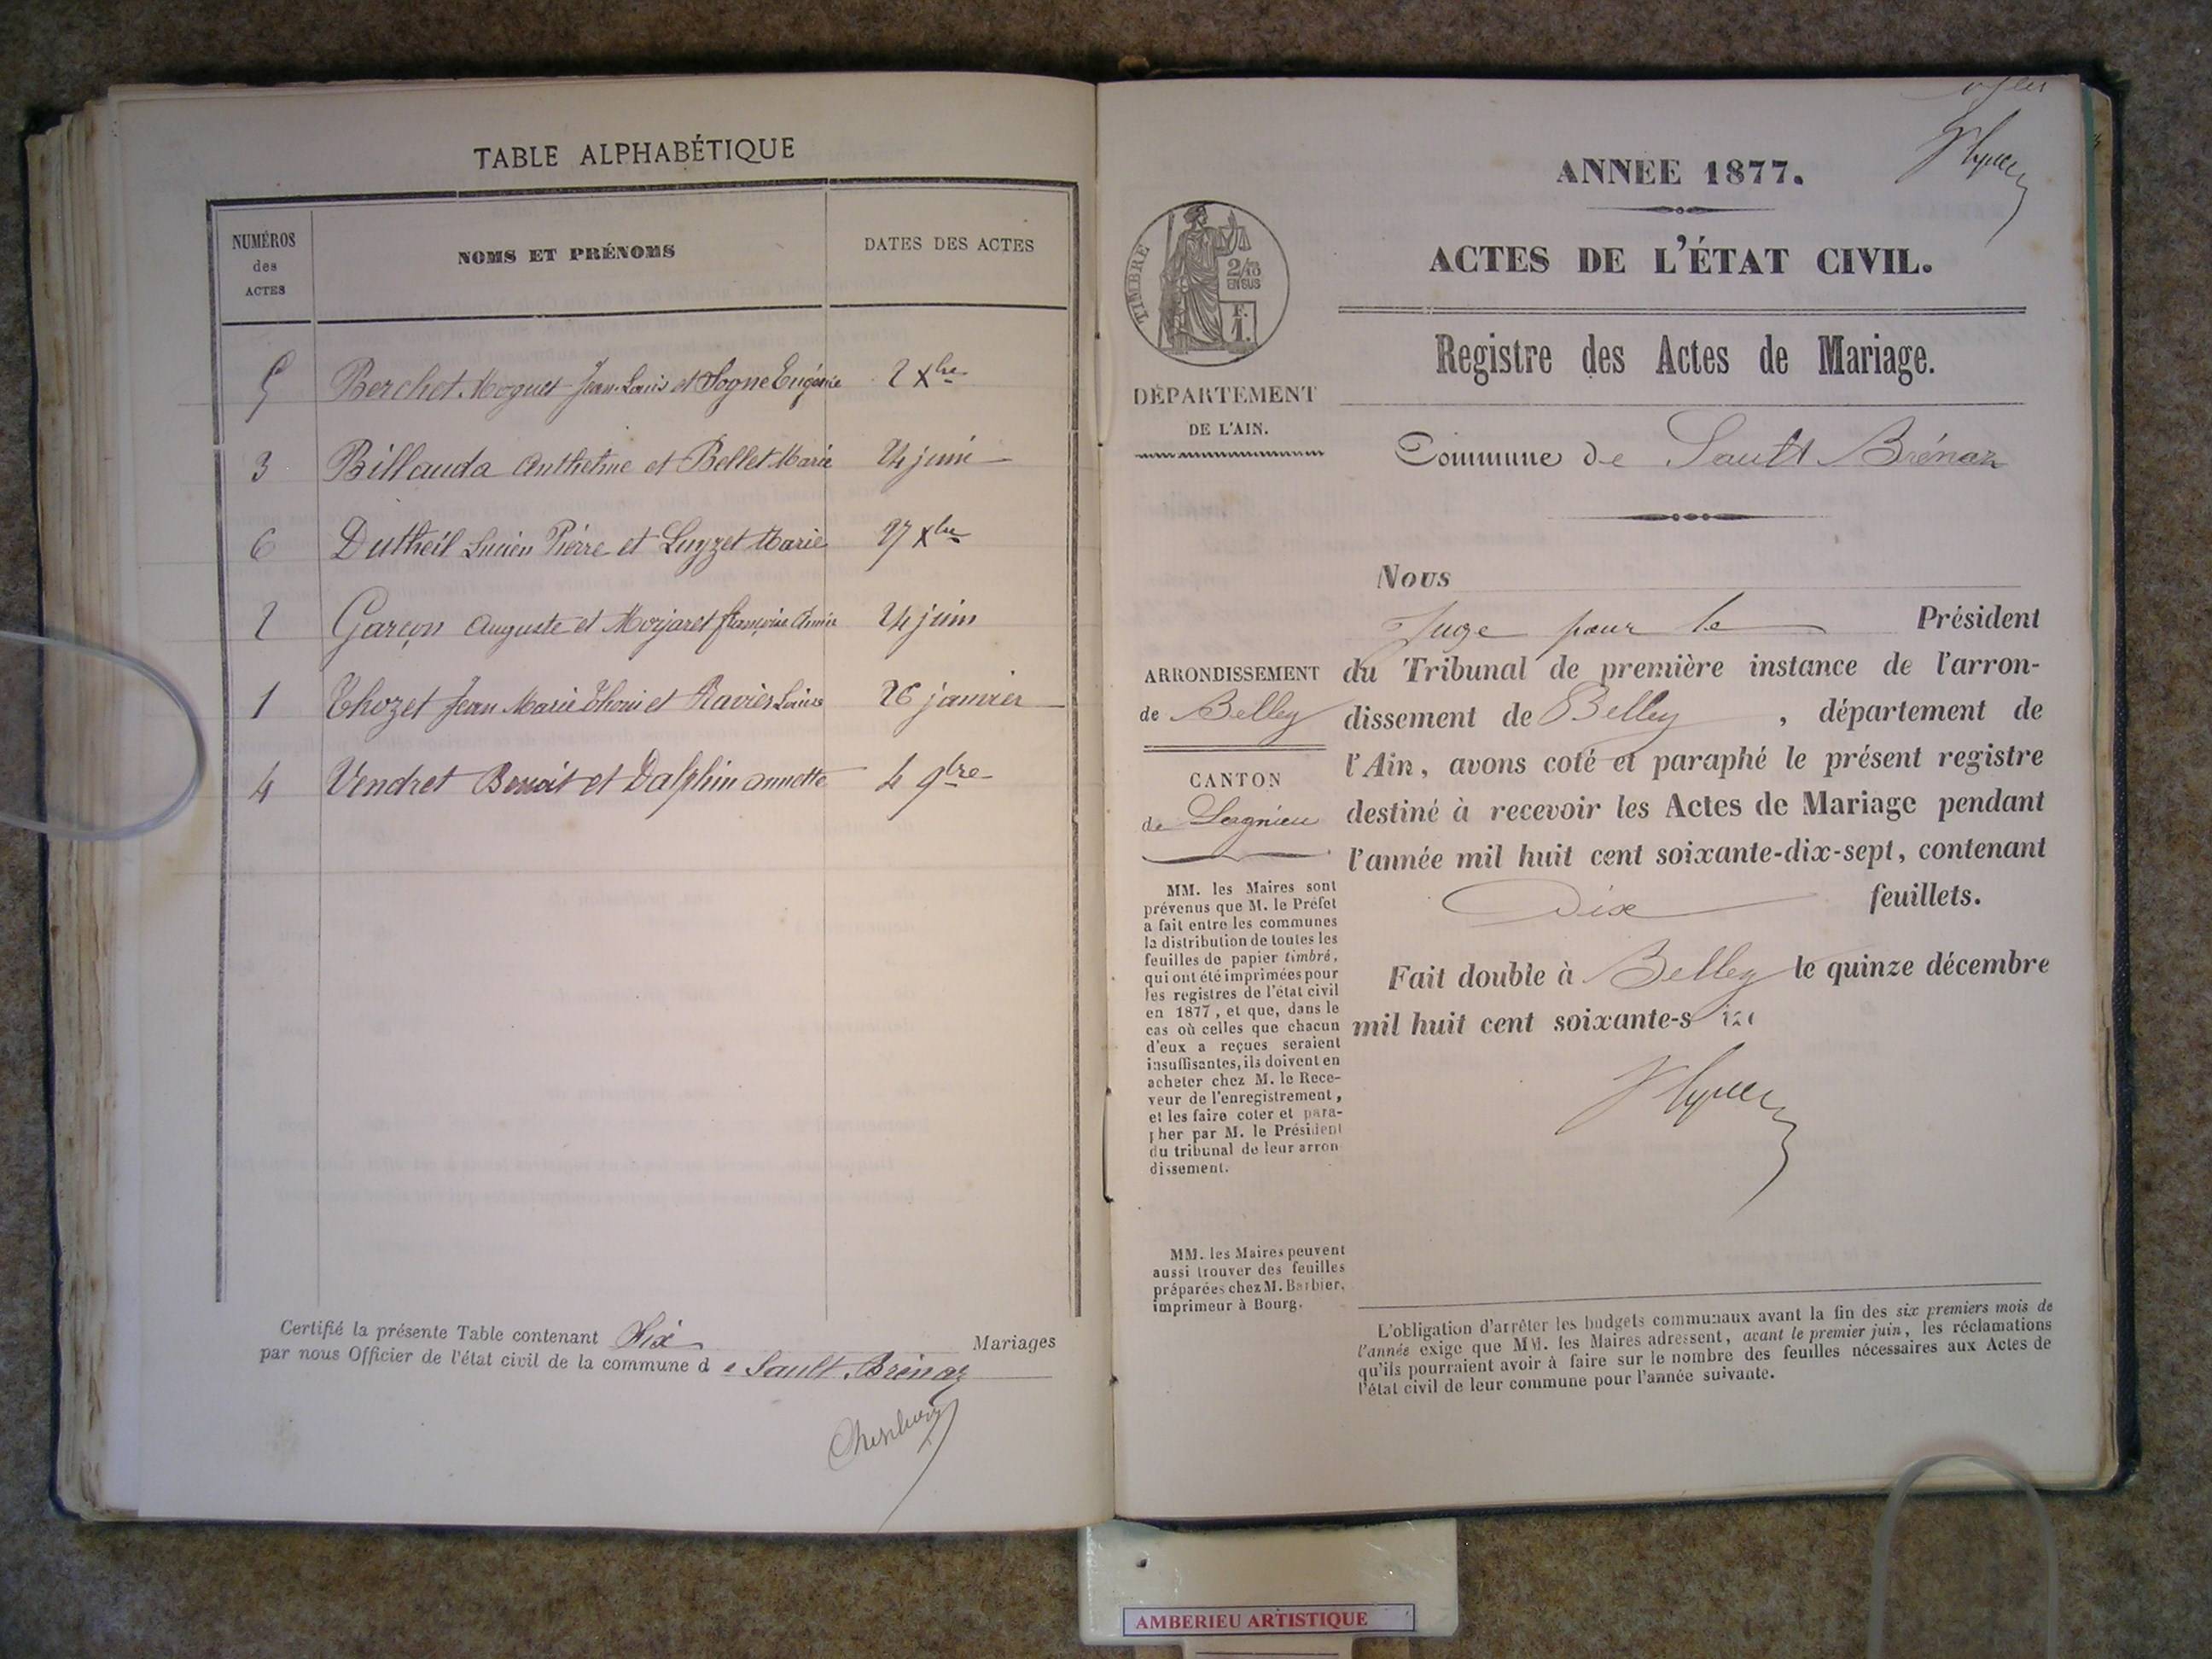 TABLE ALPHABÉTIQUE
NUMÉROS
des
ACTES
NOMS ET PRÉNOMS
DATES DES ACTES
5 Berchet Moguet Jean Louis et Eugénie 2 Xbre
3 Billauda Anthelme et Bellet Marie 24 juin
6 Dutheil Lucien Pierre et Luyzet Marie 27 Xbre
2 Garçon Auguste et Morjaret françoise 24 juin
1 Chozet Jean Marie et Ravier Louise 26 janvier
4 Vendret Benoit et Dalphin annette 4 9bre
Certifié la présente Table contenant Six Mariages
par nous Officier de l'état civil de la commune d e Sault Brénaz
ANNÉE 1877.
ACTES DE L'ÉTAT CIVIL.
Registre des Actes de Mariage.
TIMBRE
2/10
EN SUS
F.
1.
DÉPARTEMENT
DE L'AIN.
Commune de Sault Brénaz
Nous
Juge pour le Président
du Tribunal de première instance de l'arron-
dissement de Belley , département de
l'Ain, avons coté et paraphé le présent registre
destiné à recevoir les Actes de Mariage pendant
l'année mil huit cent soixante-dix-sept, contenant
Dix feuillets.
Fait double à Belley le quinze décembre
mil huit cent soixante-s
ARRONDISSEMENT
de Belley
CANTON
de Lagnieu
MM. les Maires sont
prévenus que M. le Préfet
a fait entre les communes
la distribution de toutes les
feuilles de papier timbré,
qui ont été imprimées pour
les registres de l'état civil
en 1877, et que, dans le
cas où celles que chacun
d'eux a reçues seraient
insuffisantes, ils doivent en
acheter chez M. le Rece-
veur de l'enregistrement,
et les faire coter et para-
pher par M. le Président
du tribunal de leur arron
dissement.
MM. les Maires peuvent
aussi trouver des feuilles
préparées chez M. Barbier,
imprimeur à Bourg.
L'obligation d'arrêter les budgets communaux avant la fin des six premiers mois de
l'année exige que MM. les Maires adressent, avant le premier juin, les réclamations
qu'ils pourraient avoir à faire sur le nombre des feuilles nécessaires aux Actes de
l'état civil de leur commune pour l'année suivante.
AMBERIEU ARTISTIQUE